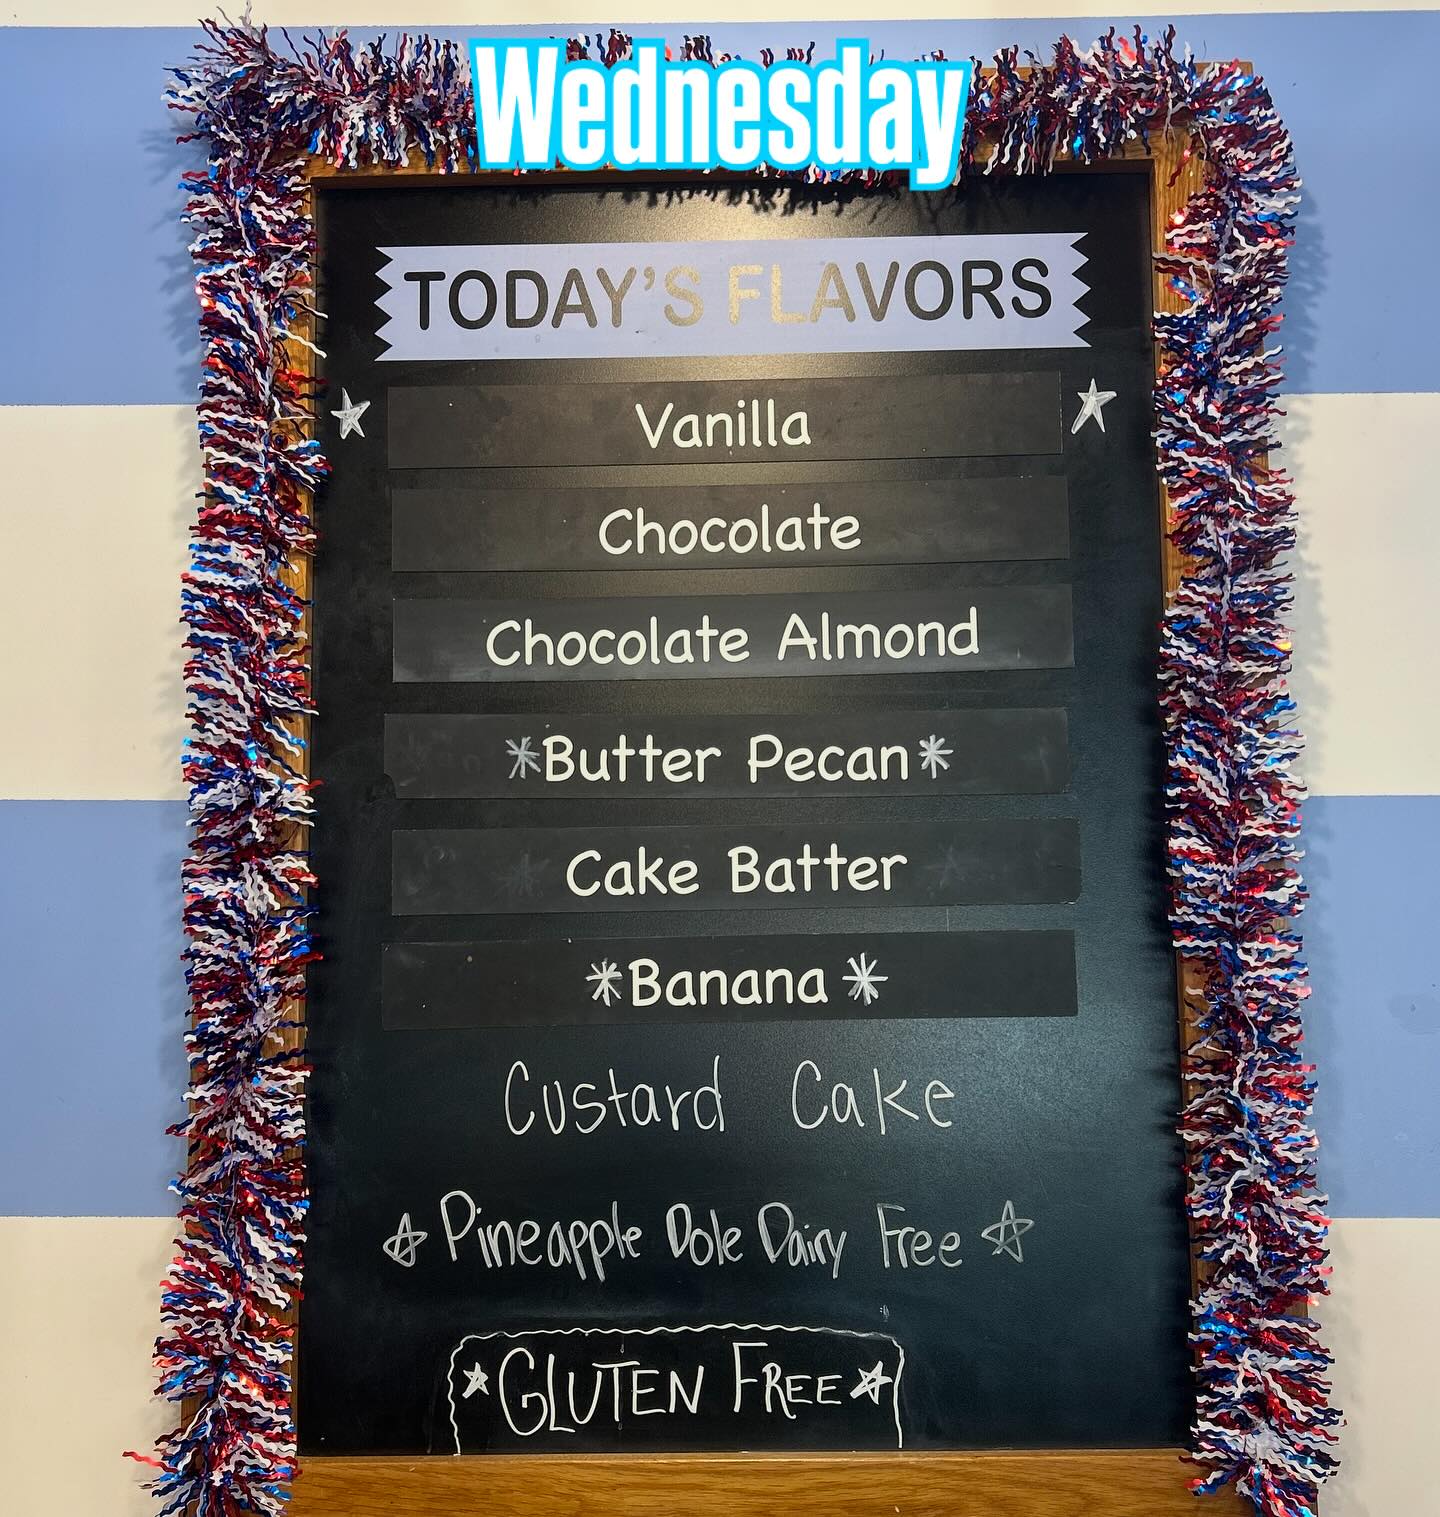 Wednesday
TODAY'S FLAVORS
Vanilla
Chocolate
Chocolate Almond
*Butter Pecan*
Cake Batter
*Banana*
Custard Cake
☆ Pineapple Dole Dairy Free ☆
☆ GLUTEN FREE ☆